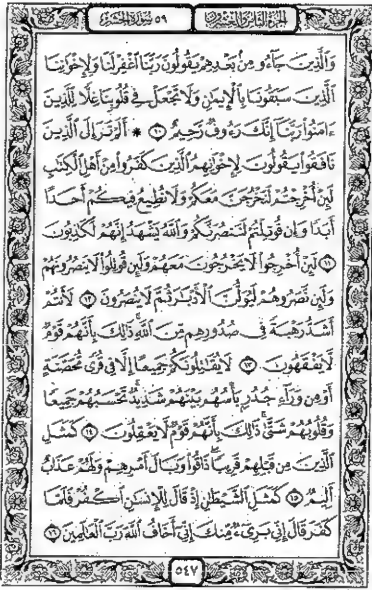 الجزء الثامن والعشرون ٥٩ سورة الحشر
وَالَّذِينَ جَآءُو مِنۢ بَعْدِهِمْ يَقُولُونَ رَبَّنَا ٱغْفِرْ لَنَا وَلِإِخْوَٰنِنَا
ٱلَّذِينَ سَبَقُونَا بِٱلْإِيمَٰنِ وَلَا تَجْعَلْ فِى قُلُوبِنَا غِلًّا لِّلَّذِينَ
ءَامَنُوا۟ رَبَّنَآ إِنَّكَ رَءُوفٌ رَّحِيمٌ ١٠ * أَلَمْ تَرَ إِلَى ٱلَّذِينَ
نَافَقُوا۟ يَقُولُونَ لِإِخْوَٰنِهِمُ ٱلَّذِينَ كَفَرُوا۟ مِنْ أَهْلِ ٱلْكِتَٰبِ
لَئِنْ أُخْرِجْتُمْ لَنَخْرُجَنَّ مَعَكُمْ وَلَا نُطِيعُ فِيكُمْ أَحَدًا
أَبَدًا وَإِن قُوتِلْتُمْ لَنَنصُرَنَّكُمْ وَٱللَّهُ يَشْهَدُ إِنَّهُمْ لَكَٰذِبُونَ
١١ لَئِنْ أُخْرِجُوا۟ لَا يَخْرُجُونَ مَعَهُمْ وَلَئِن قُوتِلُوا۟ لَا يَنصُرُونَهُمْ
وَلَئِن نَّصَرُوهُمْ لَيُوَلُّنَّ ٱلْأَدْبَٰرَ ثُمَّ لَا يُنصَرُونَ ١٢ لَأَنتُمْ
أَشَدُّ رَهْبَةً فِى صُدُورِهِم مِّنَ ٱللَّهِ ۚ ذَٰلِكَ بِأَنَّهُمْ قَوْمٌ
لَّا يَفْقَهُونَ ١٣ لَا يُقَٰتِلُونَكُمْ جَمِيعًا إِلَّا فِى قُرًى مُّحَصَّنَةٍ
أَوْ مِن وَرَآءِ جُدُرٍۭ ۚ بَأْسُهُم بَيْنَهُمْ شَدِيدٌ ۚ تَحْسَبُهُمْ جَمِيعًا
وَقُلُوبُهُمْ شَتَّىٰ ۚ ذَٰلِكَ بِأَنَّهُمْ قَوْمٌ لَّا يَعْقِلُونَ ١٤ كَمَثَلِ
ٱلَّذِينَ مِن قَبْلِهِمْ قَرِيبًا ۖ ذَاقُوا۟ وَبَالَ أَمْرِهِمْ وَلَهُمْ عَذَابٌ
أَلِيمٌ ١٥ كَمَثَلِ ٱلشَّيْطَٰنِ إِذْ قَالَ لِلْإِنسَٰنِ ٱكْفُرْ فَلَمَّا
كَفَرَ قَالَ إِنِّى بَرِىٓءٌ مِّنكَ إِنِّىٓ أَخَافُ ٱللَّهَ رَبَّ ٱلْعَٰلَمِينَ ١٦
٥٤٧